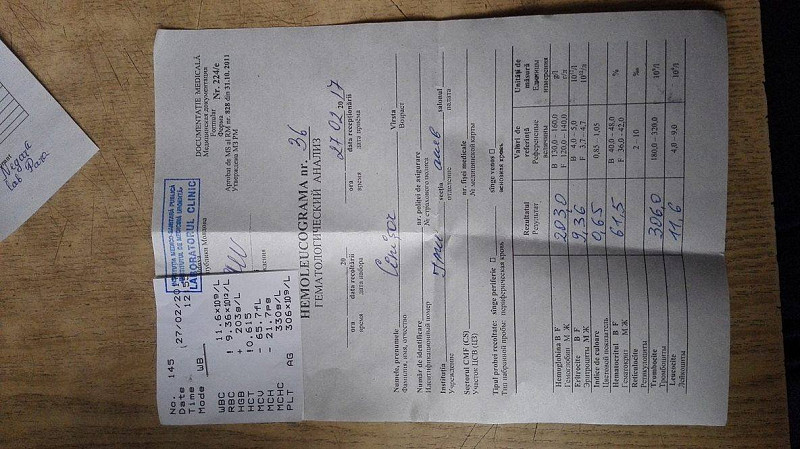 DOCUMENTAȚIE MEDICALĂ
Медицинская документация
Formular
Форма
Nr. 224/e
Aprobat de MS al RM nr. 828 din 31.10.2011
Утверждена МЗ РМ
LABORATORUL CLINIC
HEMOLEUCOGRAMA nr. 36
ГЕМАТОЛОГИЧЕСКИЙ АНАЛИЗ
20
27 02 2017
ora data recoltării
время дата забора
ora data recepționării
время дата приёма
Numele, prenumele
Фамилия, имя, отчество
Vîrsta
Возраст
Număr de identificare
Идентификационный номер
nr. poliței de asigurare
№ страхового полиса
Instituția
Учреждение
secția
отделение
salonul
палата
Sectorul CMF (CS)
Участок ЦСВ (ЦЗ)
nr. fișei medicale
№ медицинской карты
Tipul probei recoltate: sînge periferic □ sînge venos □
Тип набранной пробы: периферическая кровь венозная кровь
Rezultatul
Результат
Valori de referință
Референтные величины
Unități de măsură
Единицы измерения
Hemoglobina B F 203,0 B 130,0 – 160,0 g/l
Гемоглобин М Ж F 120,0 – 140,0 г/л
Eritrocite B F 9,36 B 4,0 – 5,0 10¹²/l
Эритроциты М Ж F 3,7 – 4,7 10¹²/л
Indice de culoare 0,65 0,85 – 1,05
Цветовой показатель
Hematocritul B F 61,5 B 40,0 – 48,0 %
Гематокрит М Ж F 36,0 – 42,0
Reticulocite 2 – 10 ‰
Ретикулоциты
Trombocite 306,0 180,0 – 320,0 10⁹/l
Тромбоциты
Leucocite 11,6 4,0 – 9,0 10⁹/l
Лейкоциты
No. 145
Date 27/02/20
Time 12
Mode WB
WBC 11.6×109/L
RBC ! 9.36×1012/L
HGB + 203g/L
HCT !0.615
MCV - 65.7fL
MCH - 21.7pg
MCHC 330g/L
PLT AG 306×109/L